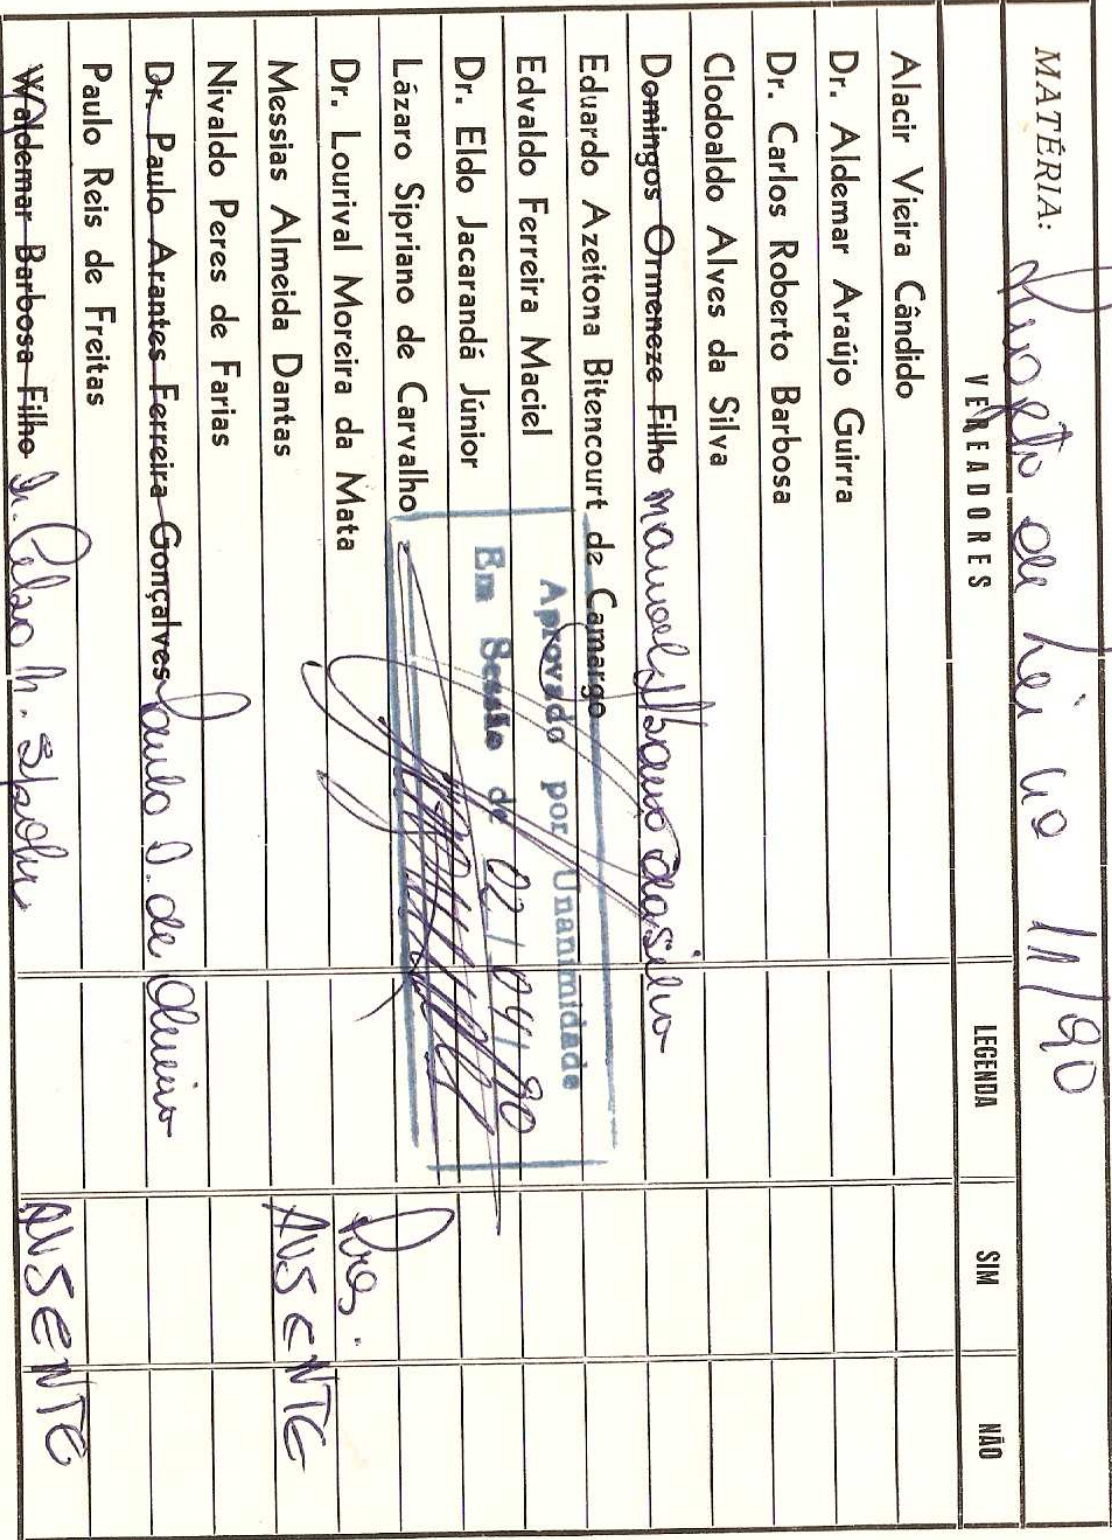 MATÉRIA: Projeto de Lei nº 11/90
VEREADORES LEGENDA SIM NÃO
Alacir Vieira Cândido
Dr. Aldemar Araújo Guirra
Dr. Carlos Roberto Barbosa
Clodoaldo Alves da Silva
Domingos Ormeneze Filho Manoel da Silva
Eduardo Azeitona Bitencourt de Camargo
Edvaldo Ferreira Maciel
Dr. Eldo Jacarandá Júnior
Lázaro Sipriano de Carvalho
Dr. Lourival Moreira da Mata Pres.
Messias Almeida Dantas AUSENTE
Nivaldo Peres de Farias
Dr. Paulo Arantes Ferreira Gonçalves Paulo de Oliveira
Paulo Reis de Freitas
Waldemar Barbosa Filho Dr. Celso M. AUSENTE
Aprovado por Unanimidade
Em Sessão de 02/04/90